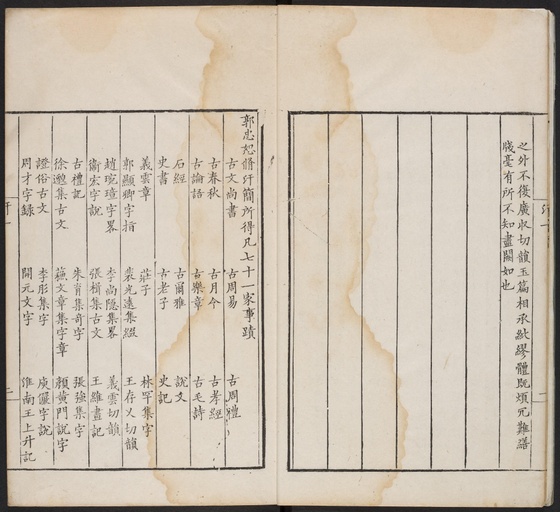 之外不復廣収切韻玉篇相承紕繆體既煩冗難繕
牋毫有所不知盡闕如也
郭忠恕修汗簡所得凡七十一家事蹟
古文尚書 古周易 古周禮
古春秋 古月令 古孝經
古論語 古樂章 古毛詩
石經 古爾雅 說文
史書 古老子 史記
義雲章 莊子 林罕集字
郭顯卿字指 裴光遠集綴 王存乂切韻
趙琬璋字畧 李尚隱集畧 義雲切韻
衞宏字說 張楫集古文 王維畫記
古禮記 朱育集奇字 張強集字
徐邈集古文 蔡文章集字章 顏黄門說字
證俗古文 李彤集字 庾儼字說
周才字録 開元文字 淮南王上升記